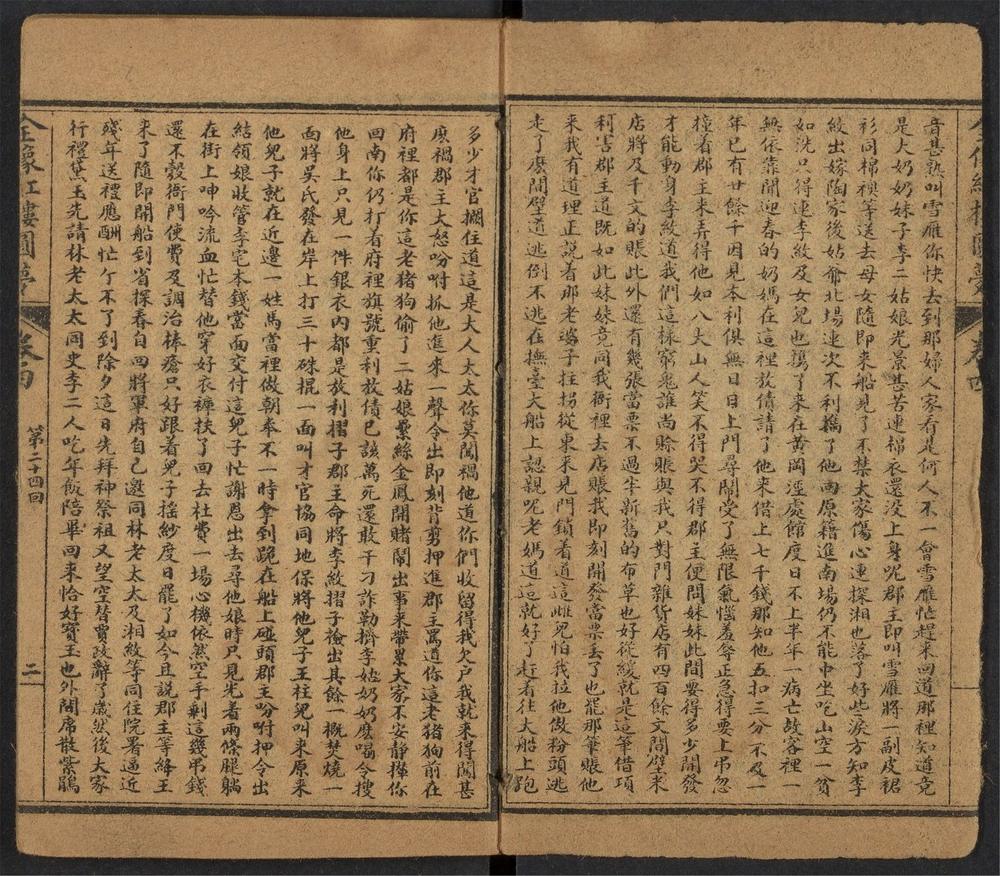 音甚熟叫雪雁你快去到那婦人家看是何人不一會雪雁忙趕來回道那裡知道竟
是大奶奶妹子李二姑娘光景甚苦連棉衣還没上身呢郡主即叫雪雁將一副皮裙
衫同棉襖等送去母女隨即來船見了不禁大家傷心連探湘也落了好些淚方知李
紋出嫁陶家後姑爺北場連次不利攜了他回原籍進南場仍不能中坐吃山空一貧
如洗只得連李紋及女兒也攜了來在黃岡湮處館度日不上半年一病亡故客裡一
無依靠聞迎春的奶媽在這裡放債請了他來借上七千錢那知他五扣三分不及一
年已有廿餘千因見本利俱無日日上門尋鬧受了無限氣惱羞辱正急得要上弔忽
撞着郡主來弄得他如八大山人笑不得哭不得郡主便問妹妹此間要得多少開發
才能動身李紋道我們這樣窮鬼誰尚賒賬與我只對門雜貨店有四百餘文間壁米
店將及千文的賬此外還有幾張當票不過半新舊的布草也好從緩就是這筆借項
利害郡主道既如此妹妹竟同我衙裡去店賬我即刻開發當票丢了也罷那筆賬他
來我有道理正說着那老婆子拄拐從東來見門鎖着道這雌兒怕我拉他做粉頭逃
走了麽間壁道逃倒不逃在撫臺大船上認親呢老媽道這就好了赶着往大船上跑
多少才官攔住道這是大人太太你莫闖禍他道你們收留得我欠户我就来得闖甚
麽禍郡主大怒吩咐抓他進來一聲令出即刻背剪押進郡主罵道你這老猪狗前在
府裡都是你這老猪狗偷了二姑娘纍絲金鳳開賭鬧出事来帶累大家不安靜攆你
回南你仍打着府裡旗號重利放債已該萬死還敢干刁詐勒掯李姑奶奶麽喝令搜
他身上只見一件銀衣内都是放利摺子郡主命將李紋摺子檢出其餘一概焚燒一
面將吴氏發在岸上打三十硃棍一面叫才官協同地保將他兒子王柱兒叫来原來
他兒子就在近邊一姓馬當裡做朝奉不一時拿到跪在船上碰頭郡主吩咐押令出
結領娘收管李宅本錢當面交付這兒子忙謝恩出去尋他娘時只見光着兩條腿躺
在街上呻吟流血忙替他穿好衣褲扶了回去杜費一場心機依然空手剩這幾弔錢
還不彀衙門使費及調治棒瘡只好跟着兒子搖紗度日罷了如今且說郡主等絳王
来了隨即開船到省探春自回將軍府自己邀同林老太太及相紋等同住院署逼近
殘年送禮應酬忙亇不了到除夕這日先拜神祭祖又望空替賈政辭了歲然後大家
行禮黛玉先請林老太太同史李二人吃年飯陪畢回来恰好寳玉也外閣席散紫鵑
全像紅樓圓夢
第二十四回
二